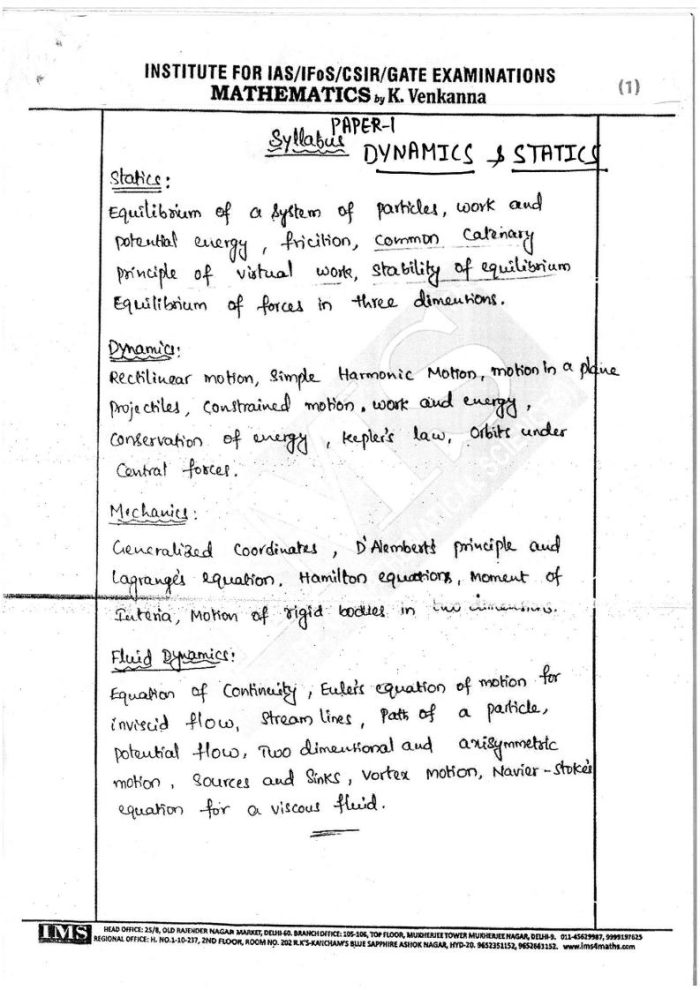 INSTITUTE FOR IAS/IFoS/CSIR/GATE EXAMINATIONS
MATHEMATICS by K. Venkanna
(1)
PAPER-I
Syllabus
DYNAMICS & STATICS
Statics:
Equilibrium of a system of particles, work and
potential energy, fricition, common catenary
principle of virtual work, stability of equilibrium
Equilibrium of forces in three dimentions.
Dynamics:
Rectilinear motion, Simple Harmonic Motion, motion in a plane
Projectiles, Constrained motion, work and energy,
Conservation of energy, kepler's law, Orbits under
Central forces.
Mechanics:
Generalized coordinates, D'Alemberts principle and
Lagrange's equation. Hamilton equations, Moment of
Interia, Motion of rigid bodies in two dimensions.
Fluid Dynamics:
Equation of Continuity, Euler's equation of motion for
inviscid flow, Stream lines, Path of a particle,
potential flow, Two dimentional and axisymmetric
motion, Sources and Sinks, Vortex motion, Navier-Stoke's
equation for a viscous fluid.
IMS
HEAD OFFICE: 25/8, OLD RAJENDER NAGAR MARKET, DELHI-60. BRANCH OFFICE: 105-106, TOP FLOOR, MUKHERJEE TOWER MUKHERJEE NAGAR, DELHI-9. 011-45629987, 9999197625
REGIONAL OFFICE: H. NO.1-10-237, 2ND FLOOR, ROOM NO. 202 R.K'S-KANCHAM'S BLUE SAPPHIRE ASHOK NAGAR, HYD-20. 9652351152, 9652661152. www.ims4maths.com